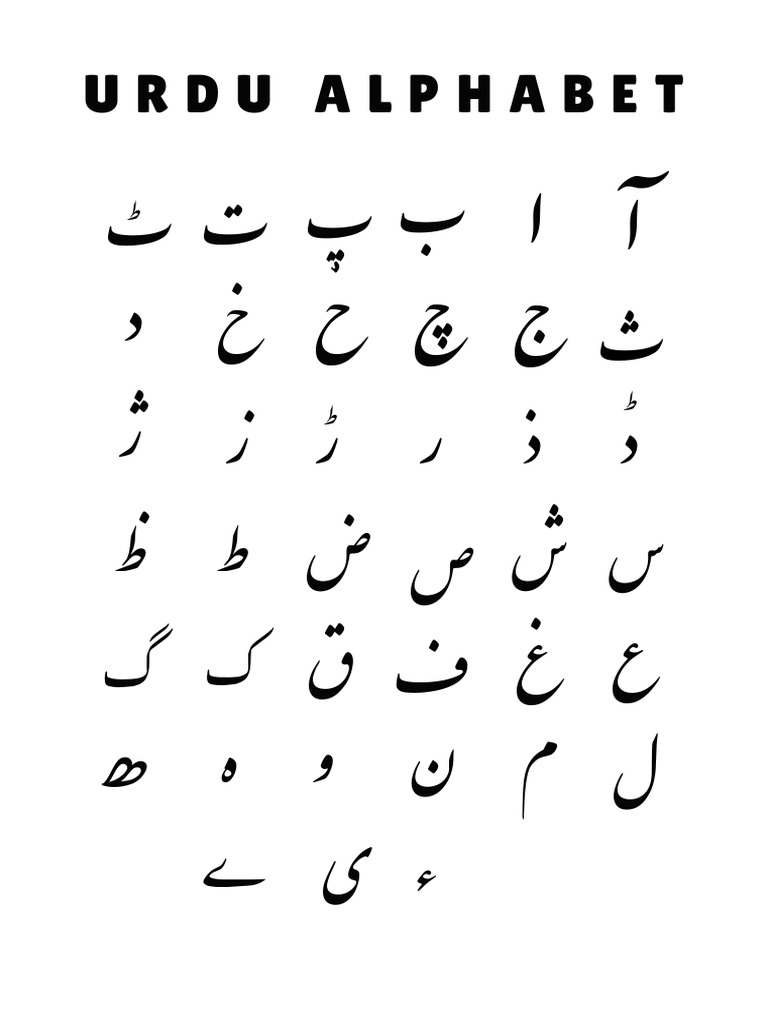 URDU ALPHABET
آ ا ب پ ت ٹ
ث ج چ ح خ د
ڈ ذ ر ڑ ز ژ
س ش ص ض ط ظ
ع غ ف ق ک گ
ل م ن و ہ ھ
ء ی ے